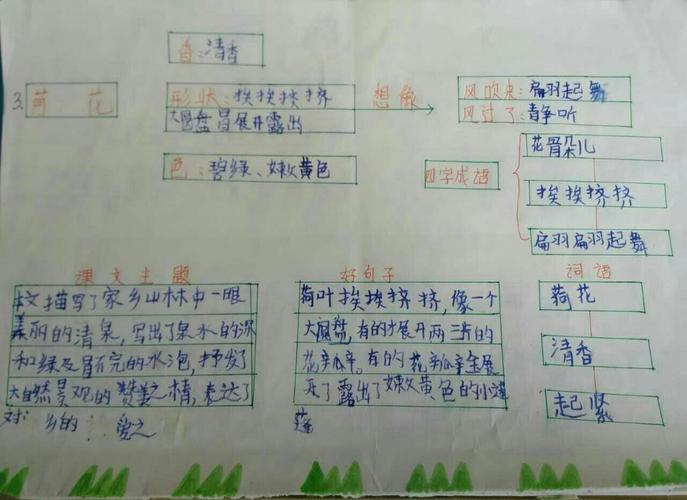 香:清香
3. 荷 花
形状:挨挨挤挤
大圆盘冒展开露出
色:碧绿、嫩黄色
想像
风吹来:翩翩起舞
风过了:静听
四字成语
花骨朵儿
挨挨挤挤
翩翩起舞
课文主题
本文描写了家乡山林中一眼
美丽的清泉,写出了泉水的深
和绿及冒不完的水泡,抒发了
大自然景观的赞美之情,表达了
对 乡的 爱之
好句子
荷叶挨挨挤挤,像一个
大圆盘,有的才展开两三片的
花瓣,有的花瓣全展
开了露出了嫩黄色的小莲
蓬
词语
荷花
清香
赶紧